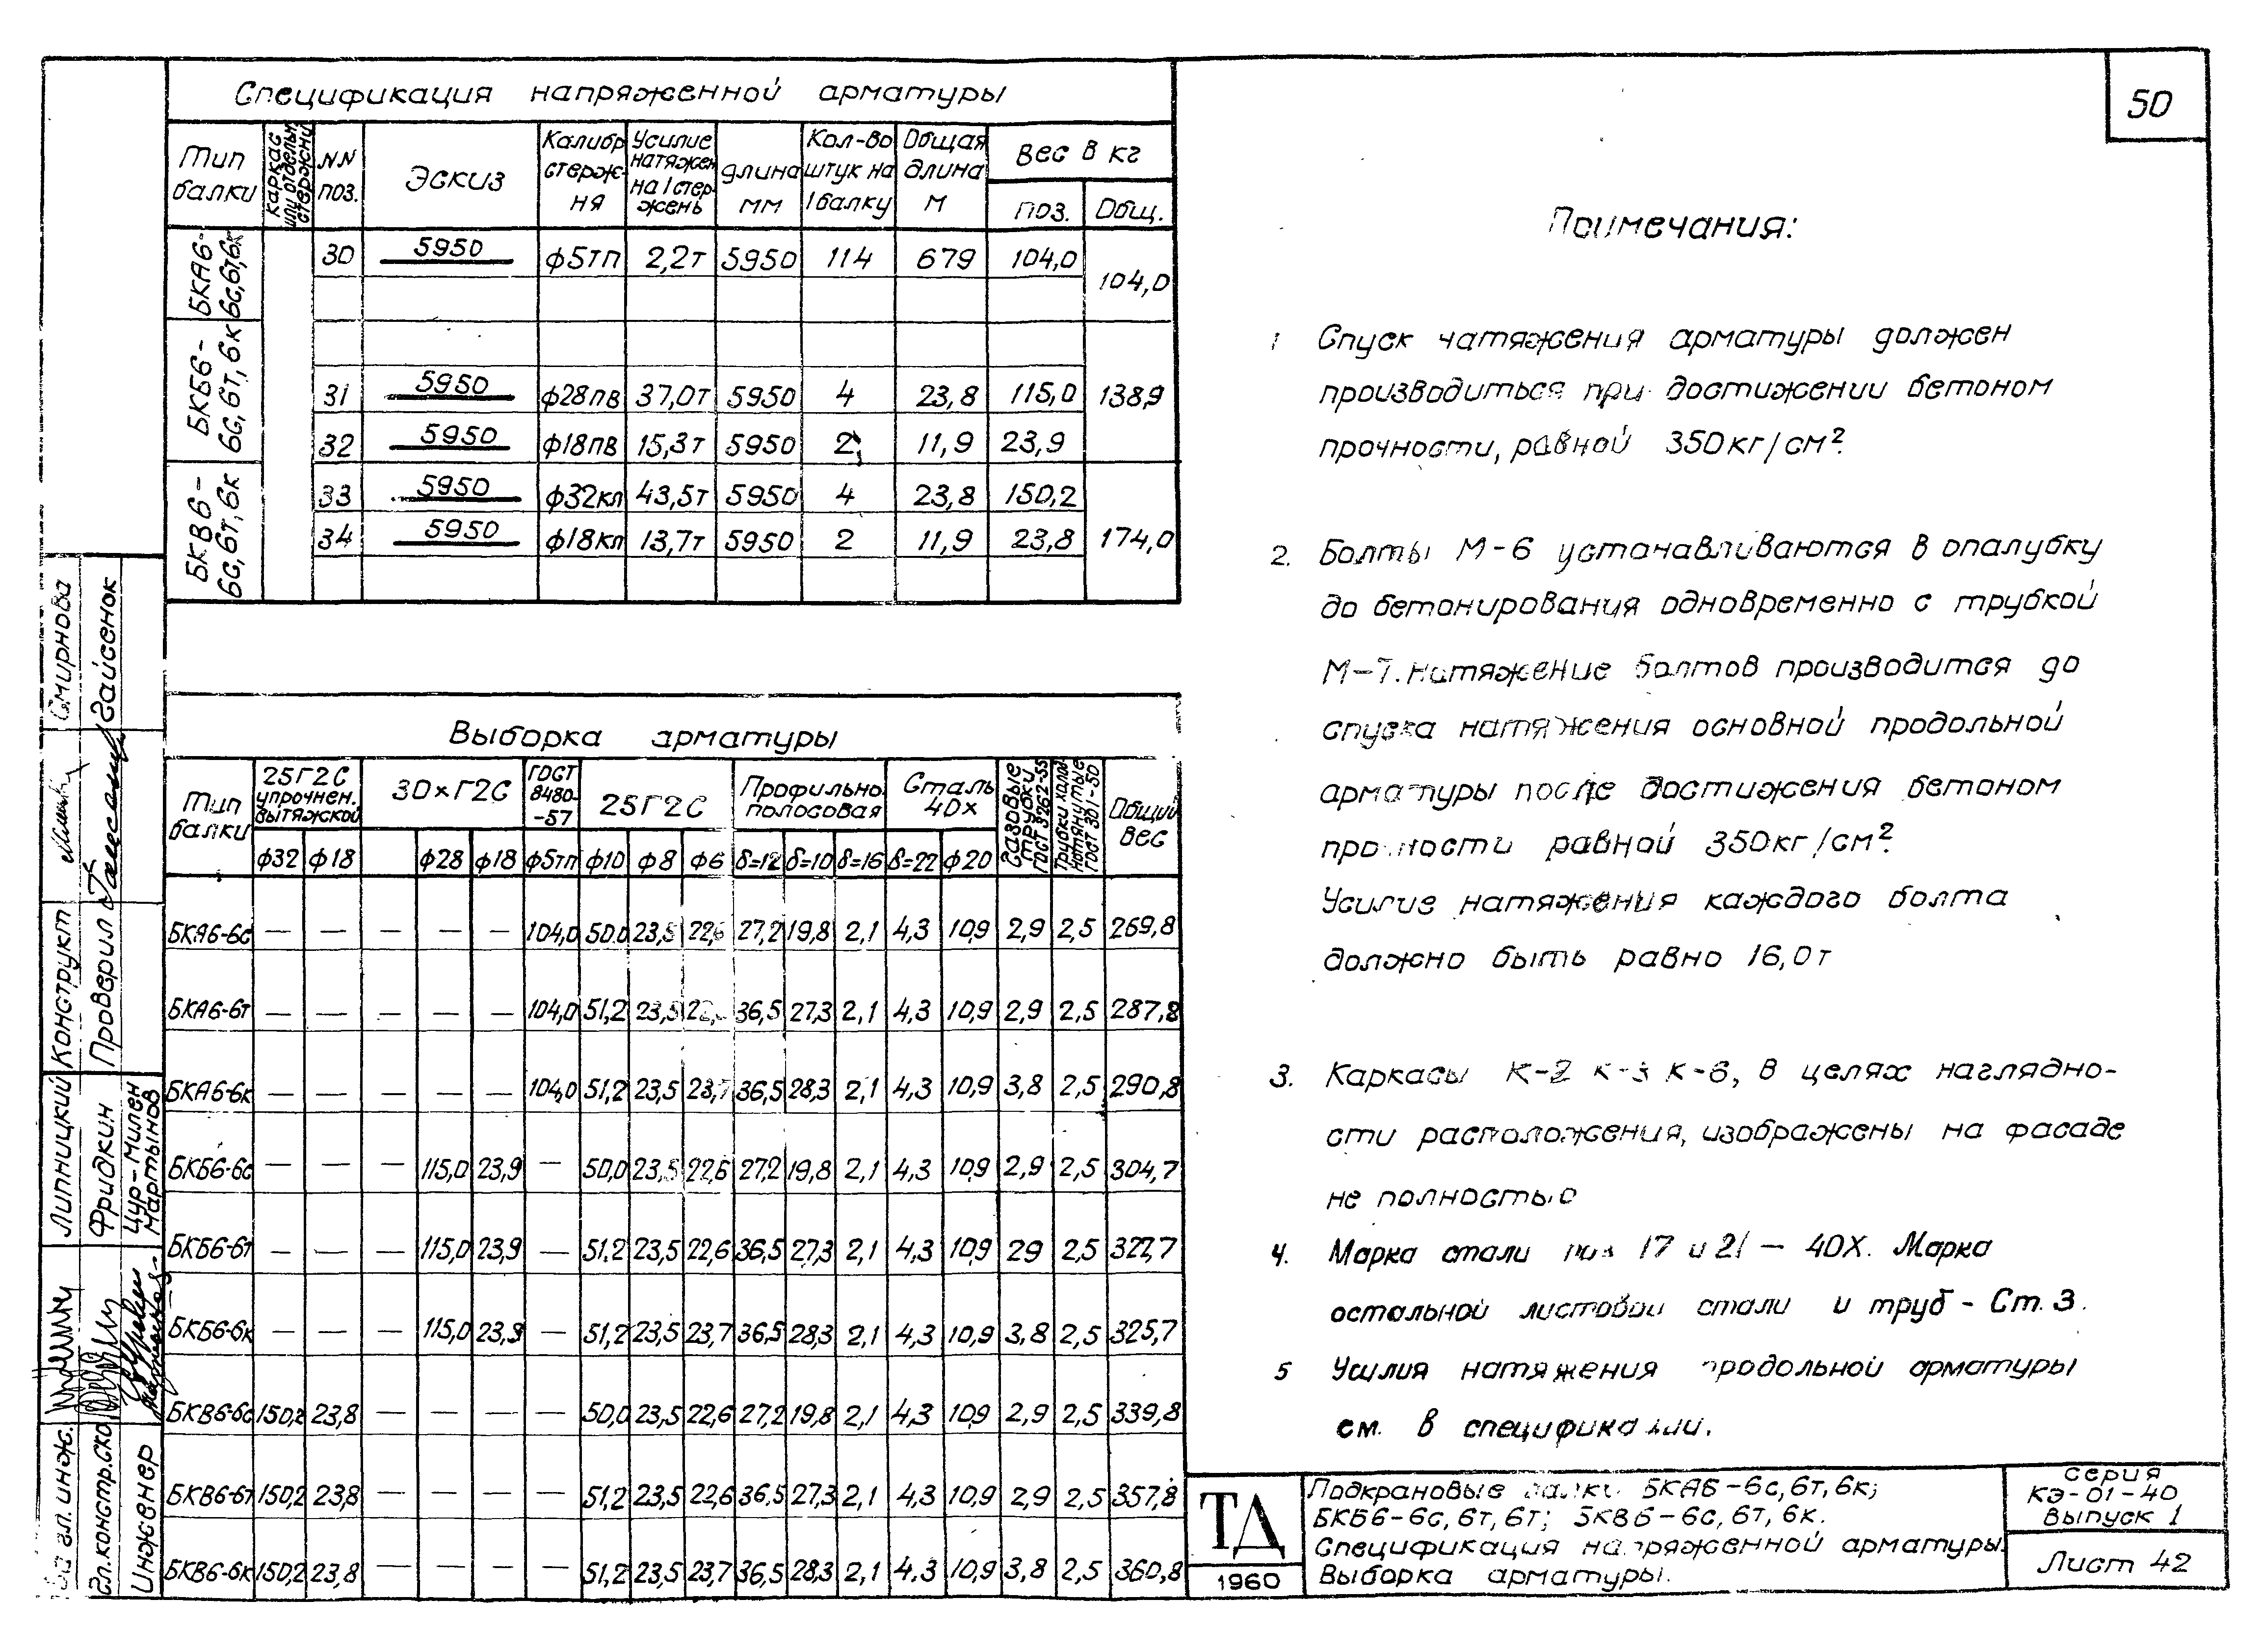 50
Спецификация напряженной арматуры
Тип балки | каркас или отдельн. стержни | NN поз. | Эскиз | Калибр стерж-ня | Усилие натяжен на 1 стер-жень | Длина мм | Кол-во штук на 1 балку | Общая длина м | Вес в кг поз. | Общ.
БКА6-6с,6т,6к | 30 | 5950 | ф5тп | 2,2т | 5950 | 114 | 679 | 104,0 | 104,0
БКБ6-6с,6т,6к | 31 | 5950 | ф28пв | 37,0т | 5950 | 4 | 23,8 | 115,0 | 138,9
32 | 5950 | ф18пв | 15,3т | 5950 | 2 | 11,9 | 23,9
БКВ6-6с,6т,6к | 33 | 5950 | ф32кп | 43,5т | 5950 | 4 | 23,8 | 150,2 | 174,0
34 | 5950 | ф18кп | 13,7т | 5950 | 2 | 11,9 | 23,8
Выборка арматуры
Тип балки | 25Г2С упрочнен. вытяжкой | 30хГ2С | ГОСТ 8480-57 | 25Г2С | Профильно полосовая | Сталь 40х | Газовые трубки ГОСТ 3262-55 | Трубки холод нотянутые ГОСТ 301-50 | Общий вес
ф32 | ф18 | ф28 | ф18 | ф5тп | ф10 | ф8 | ф6 | δ=12 | δ=10 | δ=16 | δ=22 | ф20
БКА6-6с | — | — | — | — | — | 104,0 | 50,0 | 23,5 | 22,6 | 27,2 | 19,8 | 2,1 | 4,3 | 10,9 | 2,9 | 2,5 | 269,8
БКА6-6т | — | — | — | — | — | 104,0 | 51,2 | 23,5 | 36,5 | 27,3 | 2,1 | 4,3 | 10,9 | 2,9 | 2,5 | 287,8
БКА6-6к | — | — | — | — | — | 104,0 | 51,2 | 23,5 | 23,7 | 36,5 | 28,3 | 2,1 | 4,3 | 10,9 | 3,8 | 2,5 | 290,8
БКБ6-6с | — | — | — | 115,0 | 23,9 | — | 50,0 | 23,5 | 22,6 | 27,2 | 19,8 | 2,1 | 4,3 | 10,9 | 2,9 | 2,5 | 304,7
БКБ6-6т | — | — | — | 115,0 | 23,9 | — | 51,2 | 23,5 | 22,6 | 36,5 | 27,3 | 2,1 | 4,3 | 10,9 | 29 | 2,5 | 322,7
БКБ6-6к | — | — | — | 115,0 | 23,9 | — | 51,2 | 23,5 | 23,7 | 36,5 | 28,3 | 2,1 | 4,3 | 10,9 | 3,8 | 2,5 | 325,7
БКВ6-6с | 150,2 | 23,8 | — | — | — | — | 50,0 | 23,5 | 22,6 | 27,2 | 19,8 | 2,1 | 4,3 | 10,9 | 2,9 | 2,5 | 339,8
БКВ6-6т | 150,2 | 23,8 | — | — | — | — | 51,2 | 23,5 | 22,6 | 36,5 | 27,3 | 2,1 | 4,3 | 10,9 | 2,9 | 2,5 | 357,8
БКВ6-6к | 150,2 | 23,8 | — | — | — | — | 51,2 | 23,5 | 23,7 | 36,5 | 28,3 | 2,1 | 4,3 | 10,9 | 3,8 | 2,5 | 360,8
Примечания:
1 Спуск натяжения арматуры должен
производиться при достижении бетоном
прочности, равной 350кг/см².
2. Болты М-6 устанавливаются в опалубку
до бетонирования одновременно с трубкой
М-7. Натяжение болтов производится до
спуска натяжения основной продольной
арматуры после достижения бетоном
прочности равной 350кг/см².
Усилие натяжения каждого болта
должно быть равно 16,0т
3. Каркасы К-2 к-3 К-6, в целях наглядно-
сти расположения, изображены на фасаде
не полностью
4. Марка стали поз 17 и 21 — 40Х. Марка
остальной листовой стали и труб - Ст. 3.
5 Усилия натяжения продольной арматуры
см. в спецификации.
ТД
1960
Подкрановые балки БКА6-6с,6т,6к;
БКБ6-6с,6т,6т; БКВ6-6с,6т,6к.
Спецификация напряженной арматуры.
Выборка арматуры.
серия
КЭ-01-40
Выпуск 1
Лист 42
Смирнова
Гайсенок
Конструкт
Проверил
Липницкий
Фридкин
Цур-Милен
Мартынов
гл. инж.
Гл.констр.СКО
Инженер